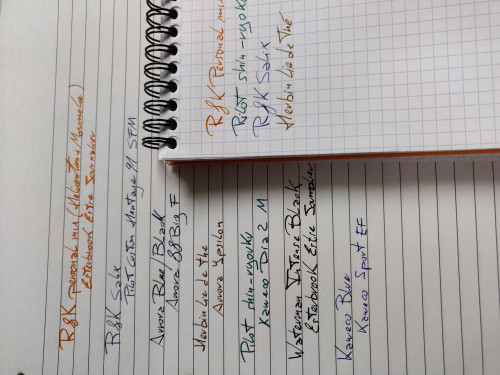 R&K personal mix
Esterbrook Estie Journaler
R&K Salix
Pilot Custom Heritage 91 SFM
Aurora Blue/Black
Aurora 88 Big F
Herbin Lie de Thé
Aurora Ypsilon
Pilot shin-ryoku
Kaweco Dia2 M
Waterman Intense Black
Esterbrook Estie Journaler
Kaweco Blue
Kaweco Sport EF
R&K Personal mix
Pilot shin-ryoku
R&K Salix
Herbin Lie de Thé